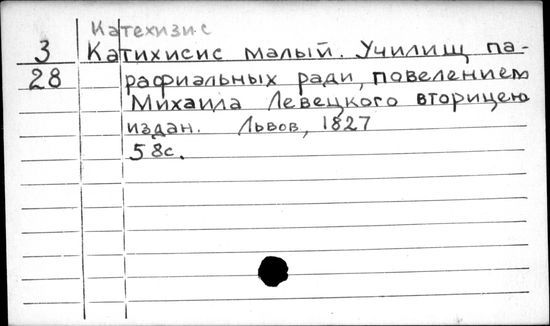 Катехизис
3 Катихисис малый. Училищ па-
28 рафиальных ради, повелением
Михаила Левецкого вторицею
издан. Львов, 1827
58с.